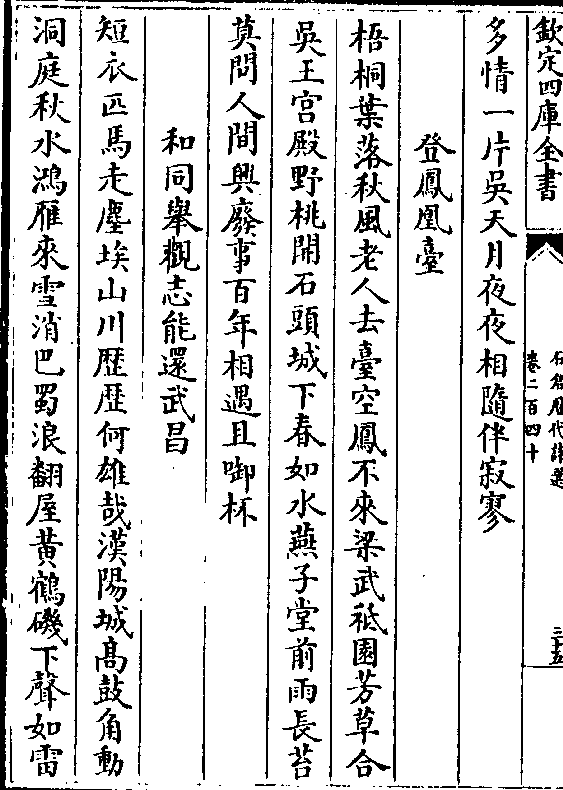 欽定四庫全書
卷二百四十
多情一片吳天月夜夜相隨伴寂寥
登鳳凰臺
梧桐葉落秋風老人去臺空鳳不來梁武祗園芳草合
吳王宮殿野桃開石頭城下春如水燕子堂前雨長苔
莫問人間興廢事百年相遇且啣杯
和同舉觀志能還武昌
短衣匹馬走塵埃山川歴歴何雄哉漢陽城高鼓角動
洞庭秋水鴻雁來雪消巴蜀浪翻屋黃鶴磯下聲如雷